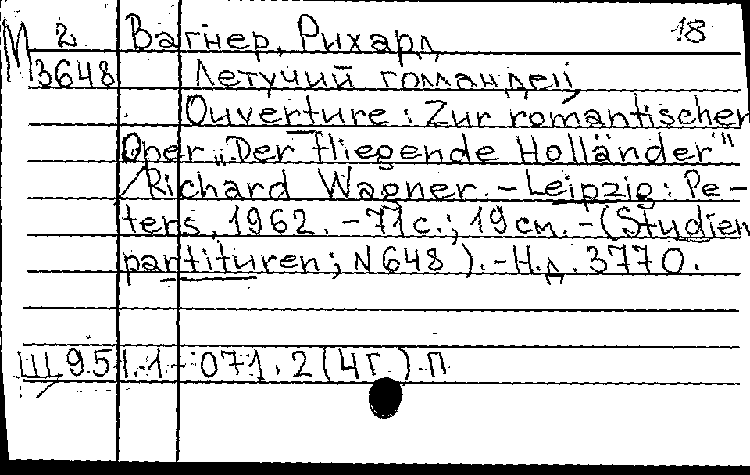 М 2 Вагнер, Рихард 18
3648 Летучий голландец
Ouverture: Zur romantischen
Oper „Der fliegende Holländer"
/Richard Wagner. - Leipzig: Pe-
ters, 1962. - 71 с.; 19 см. - (Studien
partituren; N 648). - Н.д. 3770.
Ш 95 1.1 - 071.2(4Г).П